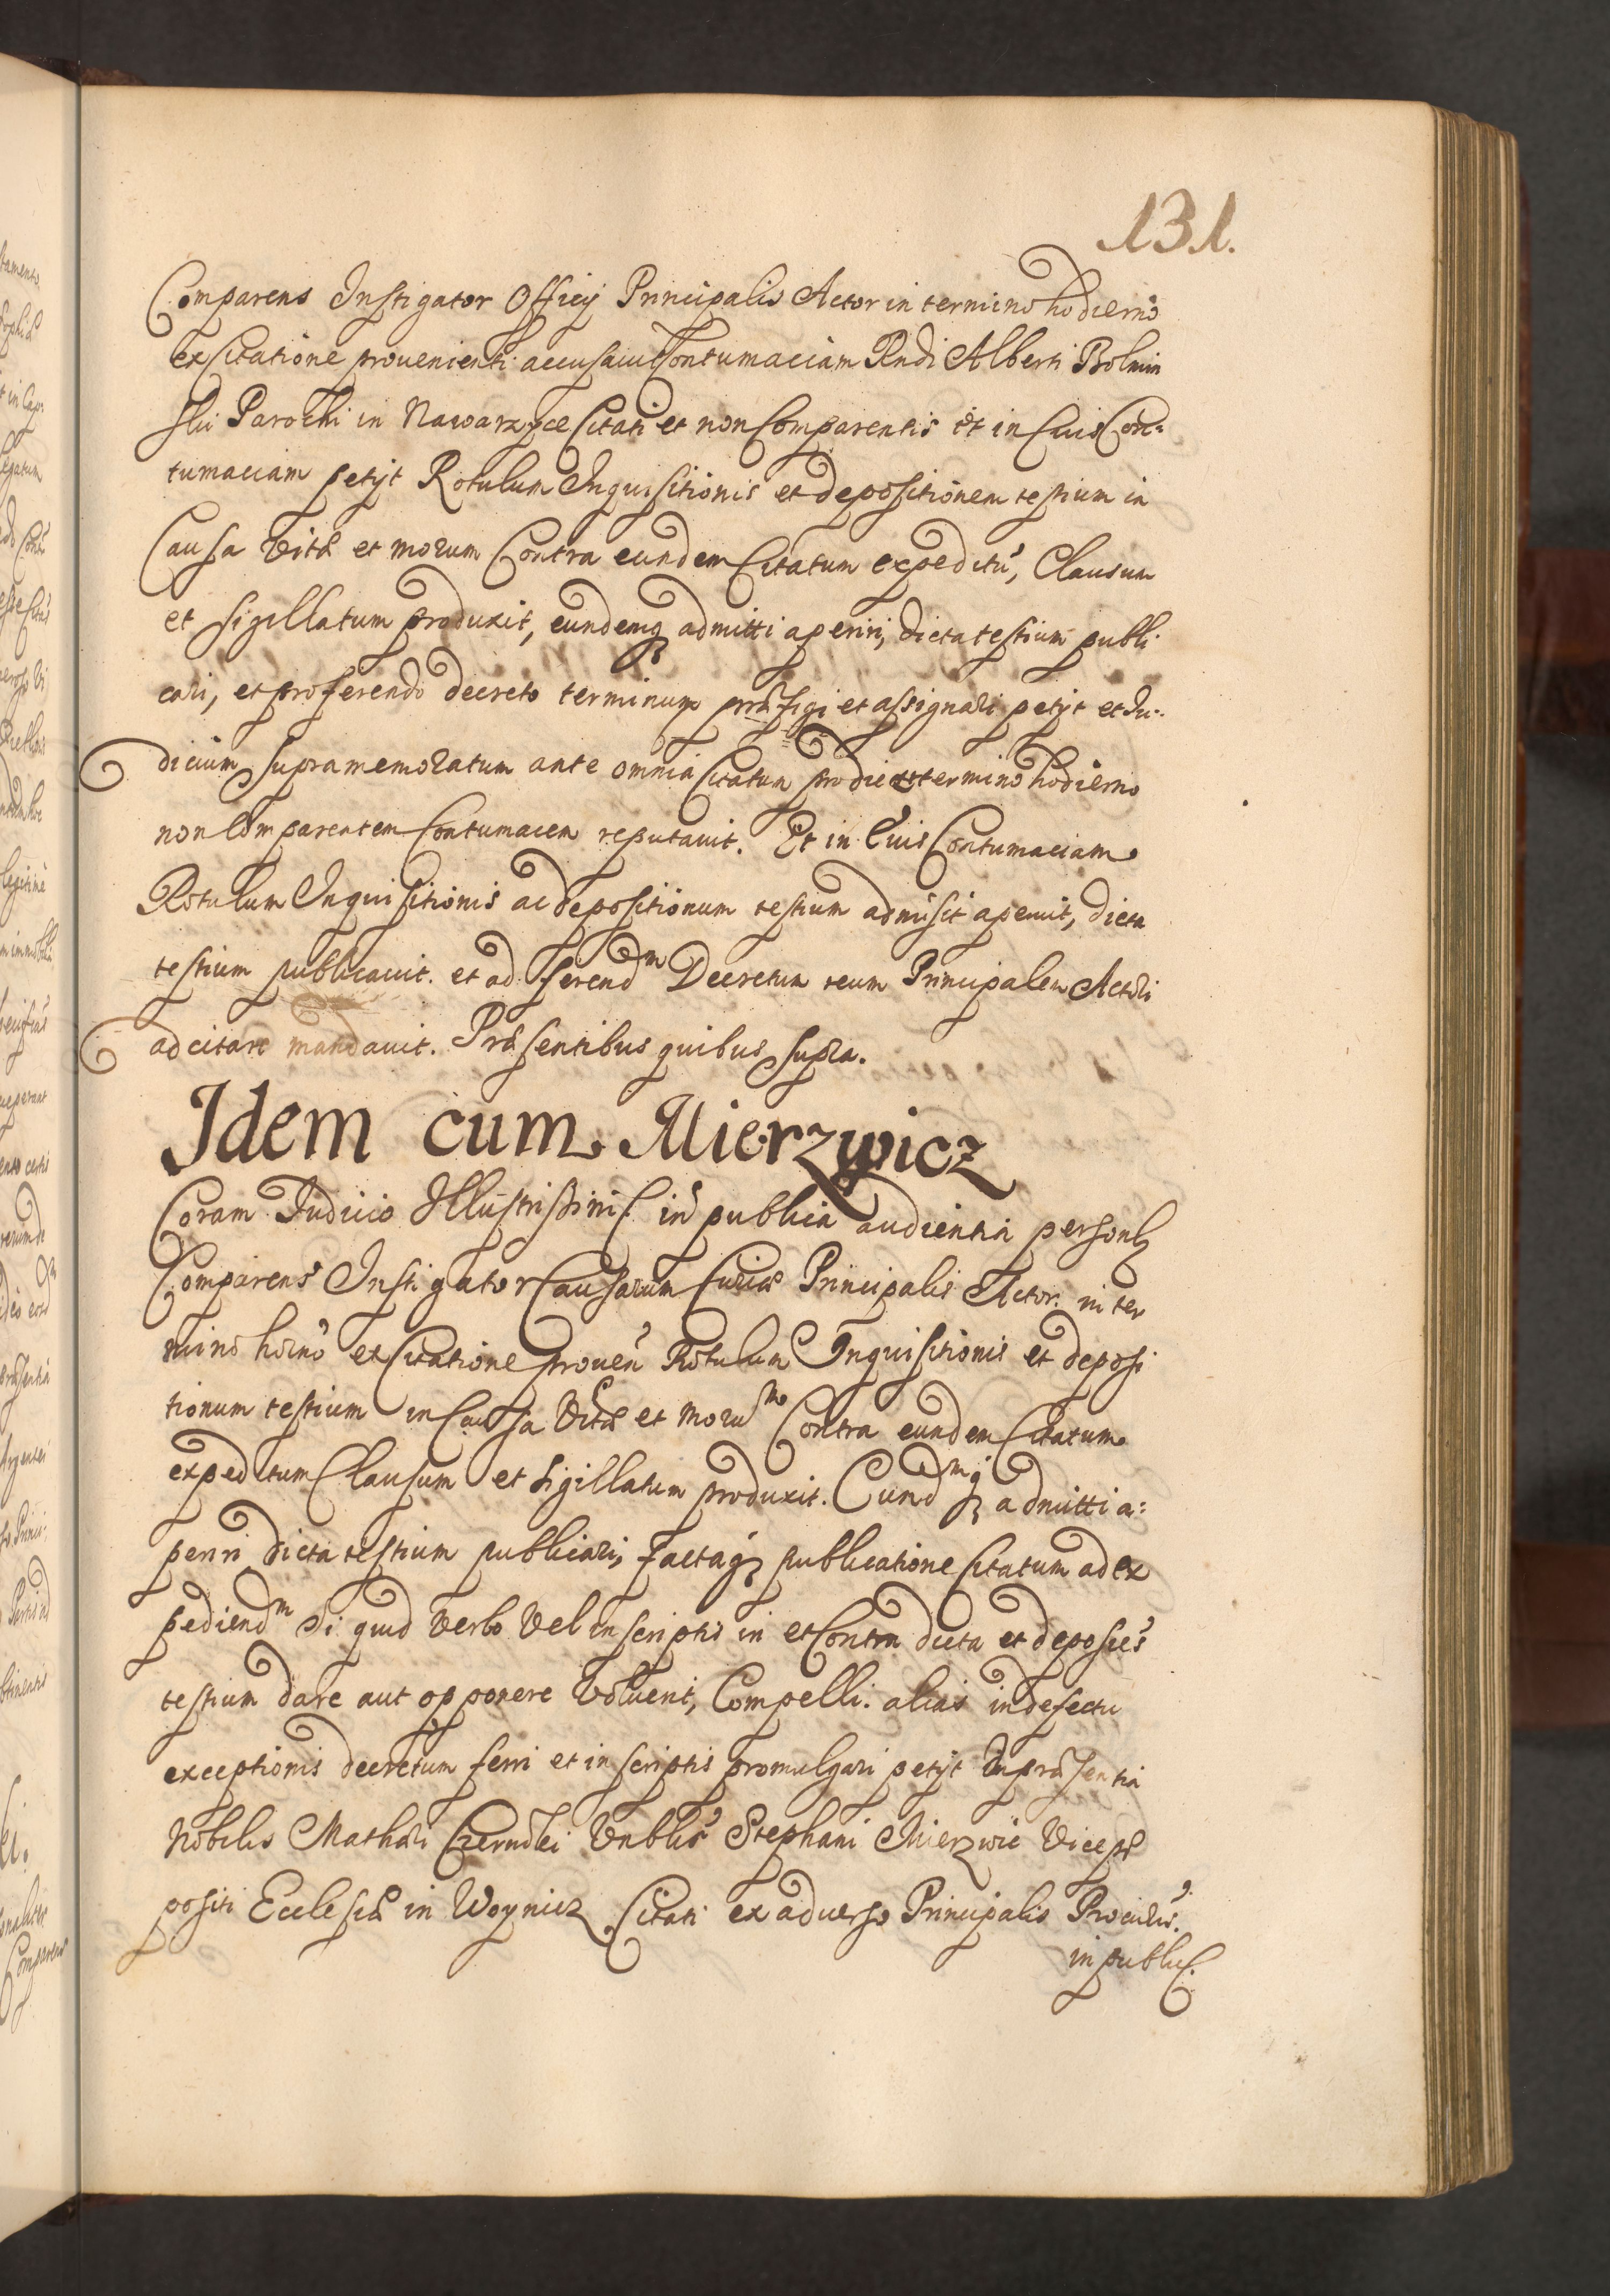 131.
Comparens Instigator Officij Principalis Actor in termino hodierno
ex Citatione provenienti accusavit Contumaciam Rndi Alberti Bolmin
ski Parochi in Nawarzyce Citati et non Comparentis et in Cuius Con=
tumaciam petijt Rotulum Inquisitionis et depositionem testium in
Causa Vitæ et morum Contra eundem Citatum expeditũ, Clausum
et sigillatum produxit, eundemq admitti aperiri, dicta testium publi
cari, et proferendo decreto terminum præfigi et assignari petijt et Ju:
dicium supramemoratum ante omnia Citatum pro die et termino hodierno
non Comparentem Contumacem reputavit. Et in Cuius Contumaciam
Rotulum Inquisitionis ac depositionum testium admisit aperuit, dicta
testium publicavit. et ad ferendm Decretum reum Principalem Actori
adcitare mandavit. Præsentibus quibus supra.
Idem cum Mierzwicz
Coram Judicio Illustrissimi C. in publica audientia personlr
Comparens Instigator Causarum Curiæ Principalis Actor in ter
mino hõcno et Citatione proven̄ Rotulum Inquisitionis et deposi
tionum testium in Causa Vitæ et morum Contra eundem Citatum
expeditum Clausum et sigillatum produxit. Eundmq admitti a:
periri dicta testium publicari, factaq publicatione Citatum ad ex
pediendm si quid verbo vel in scriptis in et Contra dicta et deposies
testium dare aut opponere voluerit, Compelli: alias in defectu
exceptionis decretum ferri et in scriptis promulgari petijt In præsentia
Nobilis Mathæi Stephani Mierzwic Vicepræ
positi Ecclesiæ in Woynicz Citati ex adverso Principalis
in public.